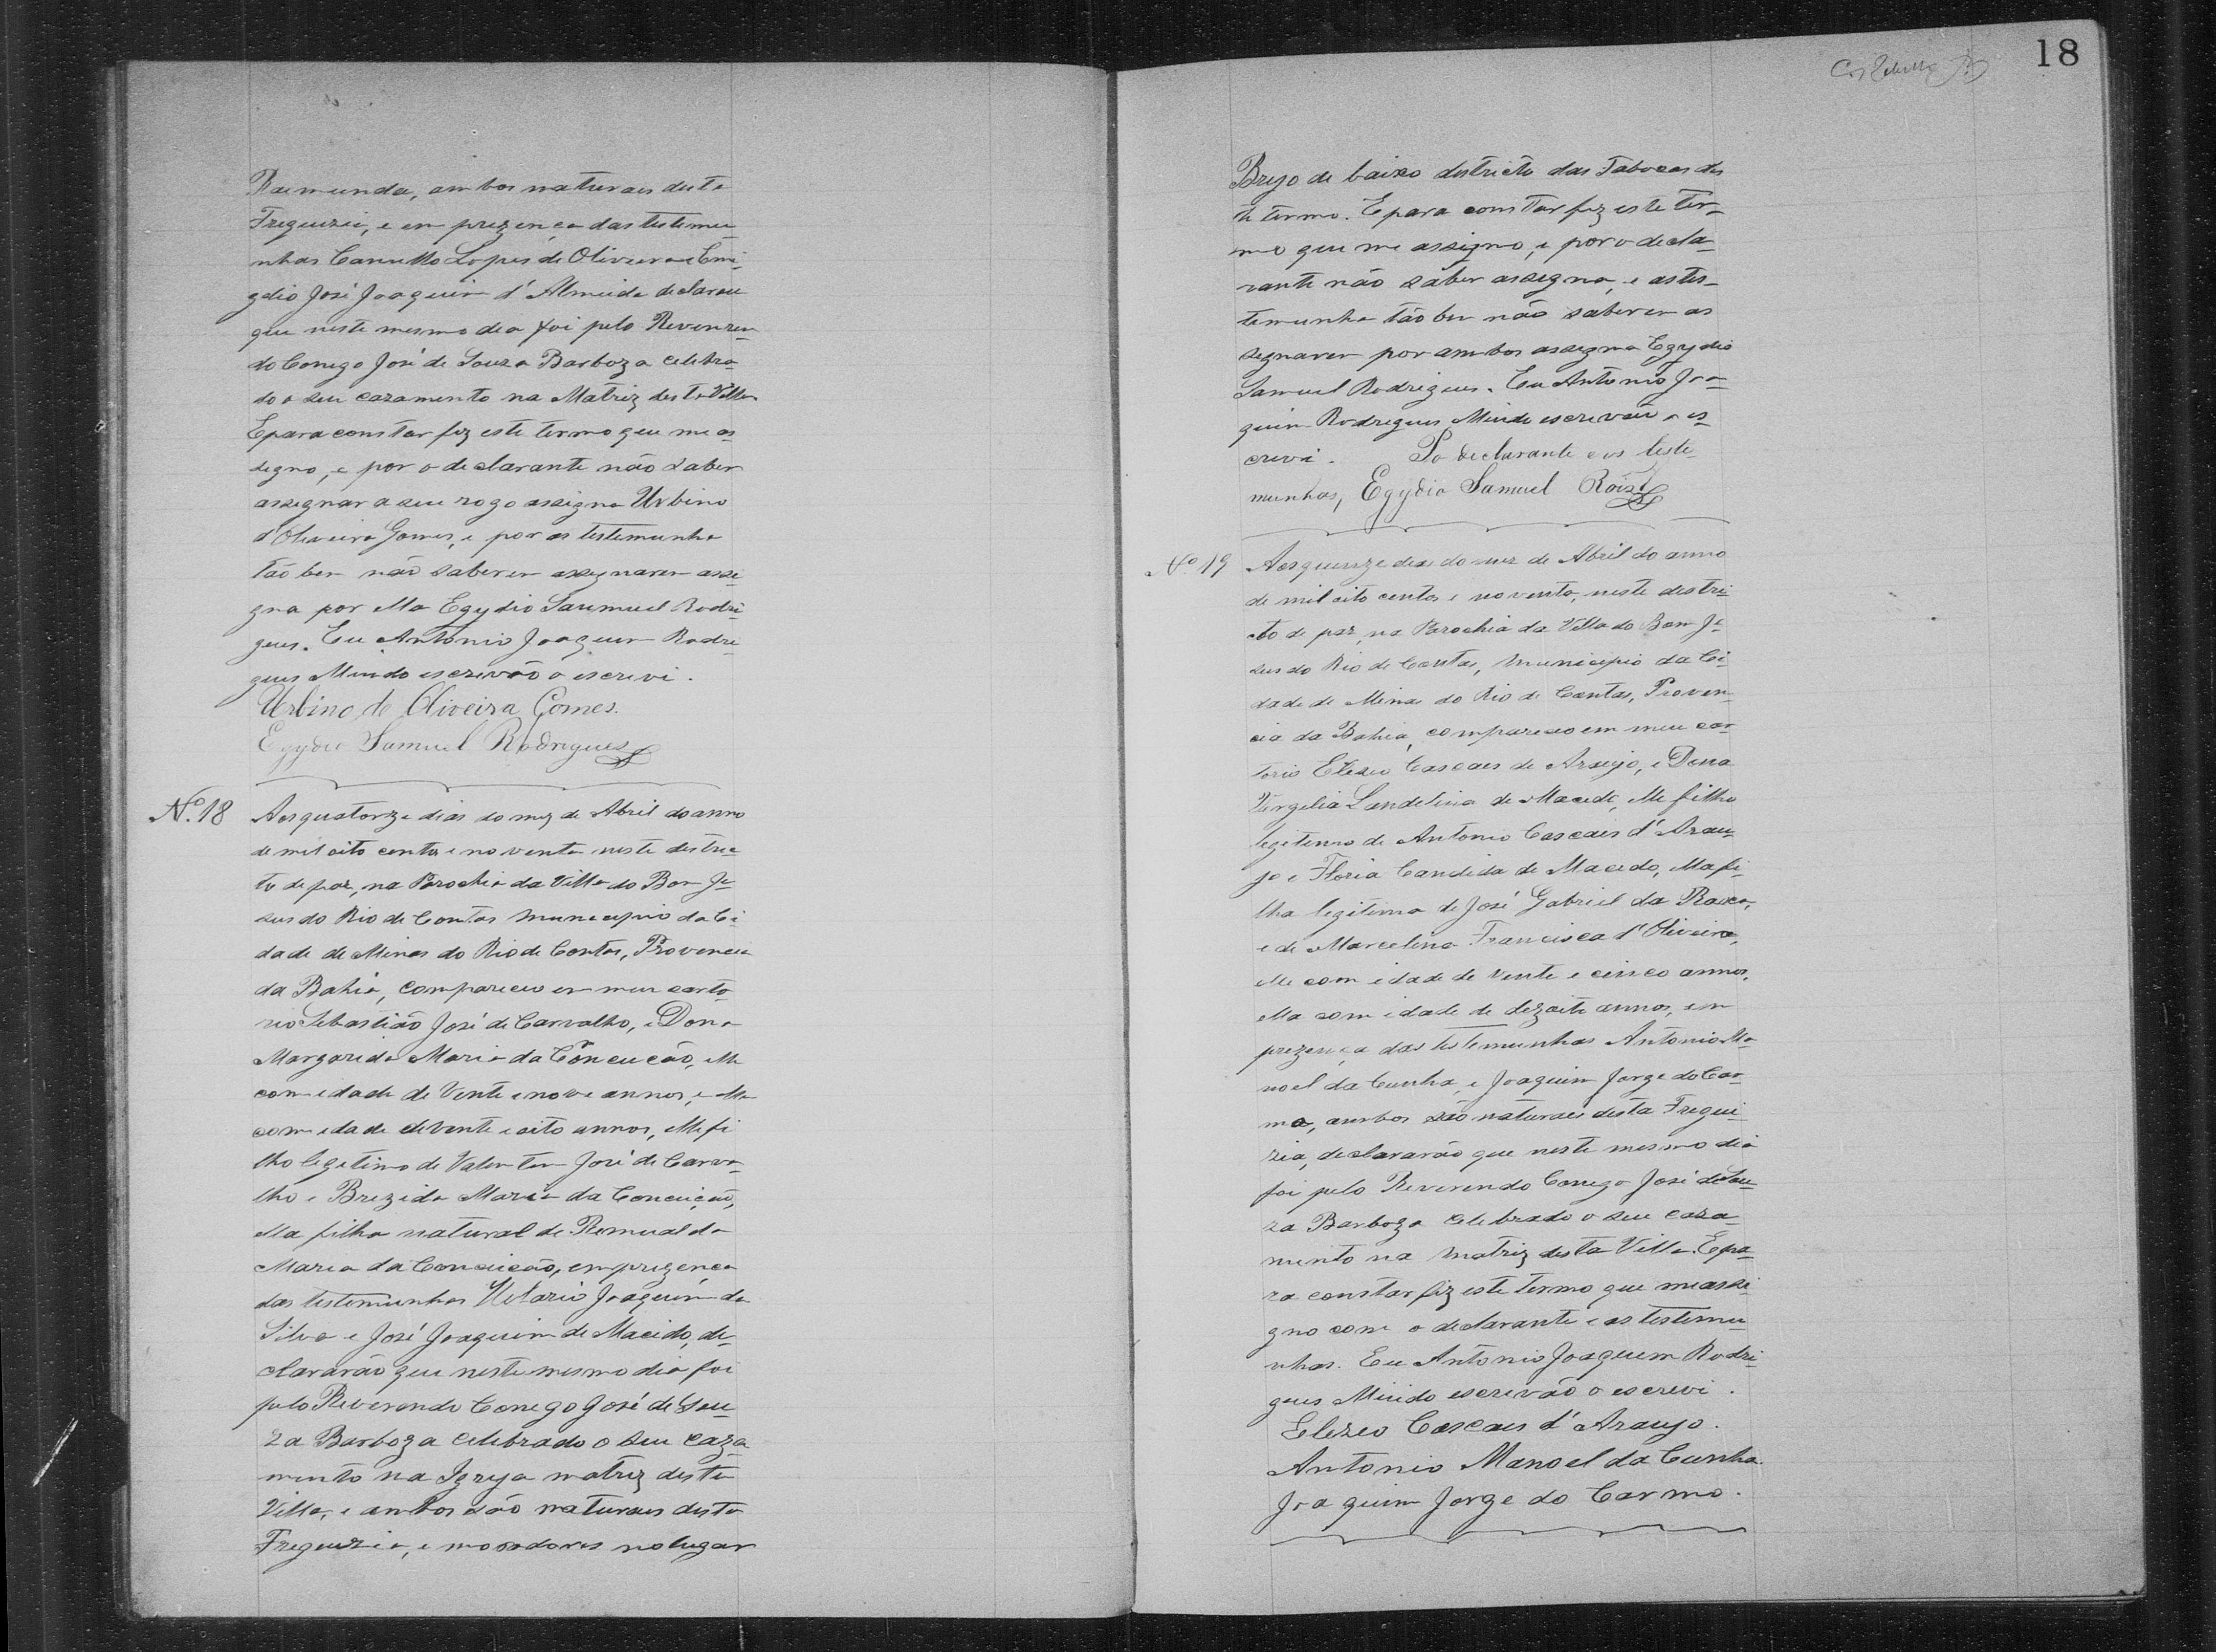 Raemunda, ambos naturaes desta
Freguezia, e em prezença das testemu-
nhas Camillo Lopes de Oliveira e Emi-
gdio José Joaquim d'Almeida declarou
que neste mesmo dia foi pelo Reveren-
do Conego José de Souza Barboza celebra-
do o seu cazamento na Matriz desta Villa
E para constar fiz este termo que me as-
segno, e por o declarante não saber
assegnar a seu rogo assigna Urbino
d'Oliveira Gomes, e por as testemunha
tão bem não saberem assegnarem assi-
gna por ella Egydio Samuel Rodri-
gues. Eu Antonio Joaquim Rodri-
gues Mundo escrivão o escrevi.
Urbino de Oliveira Gomes.
Egydio Samuel Rodrigues
Nº. 18 Aos quatorze dias do mez de Abril do anno
de mil oito centos e noventa neste destric-
to de paz, na Parochia da Villa do Bom Je-
sus do Rio de Contas Municipio da Ci-
dade de Minas do Rio de Contas, Provencia
da Bahia, compareceu em meu carto-
rio Sebastião José de Carvalho, e Dona
Margarida Maria da Conceicão, elle
com edade de Vente e nove annos, e ella
com edade de Vente e oito annos, elle fi
lho legetimo de Valentim José de Carva-
lho e Brezida Maria da Conceição,
ella filha natural de Romualda
Maria da Conceicão, em prezença
das testemunhas Hilario Joaquim da
Silva e José Joaquim de Macedo, de-
clararão que neste mesmo dia foi
pelo Reverendo Conego José de Sou-
za Barboza celebrado o seu caza-
mento na Igreja matriz desta
Villa, e ambos são naturaes desta
Freguezia, e moradores no lugar
18
Brejo de baixo districto das Tabocas des
te termo. E para constar fiz este ter-
mo que me assigno, e por o decla-
rante não saber assegna, e as tes-
temunha tão bem não saberem as
segnarem por ambos assegna Egydio
Samuel Rodrigues. Eu Antonio Joa-
quim Rodrigues Mundo escrevão o es-
crevi. Po declarante e as teste-
munhas, Egydio Samuel Roiz
Nº. 19 Aos quinze dias do mez de Abril do anno
de mil oito centos e noventa, neste destri-
cto de paz, na Parochia da Villa do Bom Je-
sus do Rio de Contas, Municipio da Ci-
dade de Minas do Rio de Contas, Proven-
cia da Bahia, compareceo em meu car-
torio Elezeo Cascaes de Araujo, e Dona
Vergelia Landelina de Macedo, elle filho
legitimo de Antonio Cascaes d'Arau-
jo e Floria Candida de Macedo, ella fi-
lha legitima de José Gabriel da Rocha,
e de Marcelina Francisca d'Oliveira,
elle com idade de vente e cinco annos,
ella com idade de dezoito annos, em
prezença das testemunhas Antonio Ma-
noel da Cunha, e Joaquim Jorge do Car-
mo, ambos são naturaes desta Fregue-
zia, declararão que neste mesmo dia
foi pelo Reverendo Conego José de Sou-
za Barboza celebrado o seu caza-
mento na Matriz desta Villa. E pa-
ra constar fiz este termo que me assi-
gno com o declarante e as testemu-
nhas. Eu Antonio Joaquim Rodri-
gues Mundo escrivão o escrevi.
Elezeo Cascaes d'Araujo.
Antonio Manoel da Cunha.
Joaquim Jorge do Carmo.